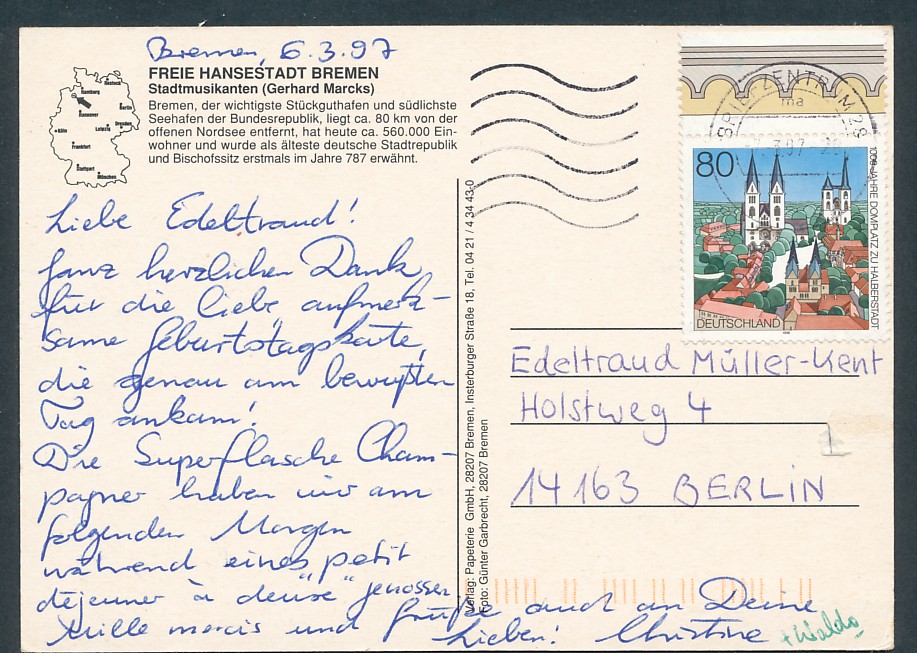 Bremen, 6.3.97
FREIE HANSESTADT BREMEN
Stadtmusikanten (Gerhard Marcks)
Bremen, der wichtigste Stückguthafen und südlichste
Seehafen der Bundesrepublik, liegt ca. 80 km von der
offenen Nordsee entfernt, hat heute ca. 560.000 Ein-
wohner und wurde als älteste deutsche Stadtrepublik
und Bischofssitz erstmals im Jahre 787 erwähnt.
Rostock
Hamburg
Berlin
Hannover
Dresden
Köln
Leipzig
Frankfurt
Stuttgart
München
Liebe Edeltraud!
Ganz herzlichen Dank
für die liebe aufmerk-
same Geburtstagskarte,
die genau am bewußten
Tag ankam!
Die Superflasche Cham-
pagner haben wir am
folgenden Morgen
während eines "petit
dejeuner à deux" genossen
Mille mercis und Grüße auch an Deine
Lieben! Christine + Waldo
Verlag: Papeterie GmbH, 28207 Bremen, Insterburger Straße 18, Tel. 04 21 / 4 34 43-0
Foto: Günter Garbrecht, 28207 Bremen
BRIEFZENTRUM 28
ma
80
1000 JAHRE DOMPLATZ ZU HALBERSTADT
DEUTSCHLAND
Edeltraud Müller-Kent
Holstweg 4
1
14163 BERLIN